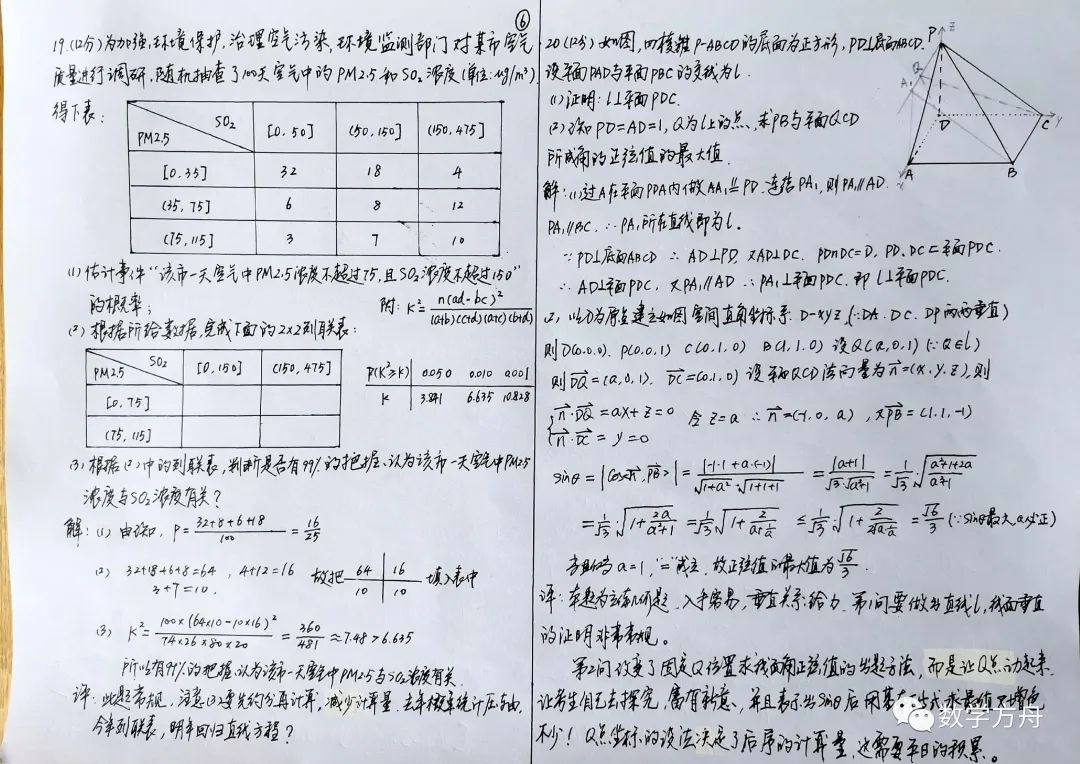 ⑥
19.(12分)为加强环境保护,治理空气污染,环境监测部门对某市空气
质量进行调研,随机抽查了100天空气中的PM2.5和SO₂浓度(单位:μg/m³)
得下表:
SO₂ [0,50] (50,150] (150,475]
PM2.5
[0,35] 32 18 4
(35,75] 6 8 12
(75,115] 3 7 10
(1)估计事件“该市一天空气中PM2.5浓度不超过75,且SO₂浓度不超过150”
的概率;
附: K²=n(ad-bc)²/(a+b)(c+d)(a+c)(b+d)
(2)根据所给数据,完成下面的2×2列联表:
SO₂ [0,150] (150,475]
PM2.5
[0,75]
(75,115]
P(K²≥k) 0.050 0.010 0.001
k 3.841 6.635 10.828
(3)根据(2)中的列联表,判断是否有99%的把握,认为该市一天空气中PM2.5
浓度与SO₂浓度有关?
解:(1)由已知, P=32+8+6+18/100=16/25
(2) 32+18+6+8=64 , 4+12=16
3+7=10.
故把 64 16 填入表中
10 10
(3) K²=100×(64×10-10×16)²/74×26×80×20=360/481≈7.48>6.635
所以有99%的把握,认为该市一天空气中PM2.5与SO₂浓度有关.
评:此题常规,注意(3)要先约分再计算,减少计算量.去年概率统计压与曲,
今年列联表,明年回归直线方程?
20(12分)如图,四棱锥P-ABCD的底面为正方形,PD⊥底面ABCD.
设平面PAD与平面PBC的交线为l.
(1)证明:l⊥平面PDC.
(2)已知PD=AD=1,Q为l上的点,求PB与平面QCD
所成角的正弦值的最大值.
P z
Q
A₁
D
C y
A
B
x
解:(1)过A在平面PDA内做AA₁∥=PD.连结PA₁,则PA₁∥AD.
PA₁∥BC.∴PA₁所在直线即为l.
∵PD⊥底面ABCD ∴AD⊥PD.又AD⊥DC. PD∩DC=D,PD、DC⊂平面PDC.
∴AD⊥平面PDC,又PA₁∥AD∴PA₁⊥平面PDC.即l⊥平面PDC.
2,以D为原点建立如图空间直角坐标系.D-xyz(∵DA、DC、DP两两垂直)
则D(0,0,0). P(0,0,1) C(0,1,0) B(1,1,0) 设Q(a,0,1)(∵Q∈l)
则DQ=(a,0,1). DC=(0,1,0) 设平面QCD法向量为n=(x,y,z),则
{n·DQ=ax+z=0 令z=a ∴n=(-1,0,a) ,又PB=(1,1,-1)
n·DC=y=0
sinθ=|cos<n,PB>|=|-1·1+a·(-1)|/√1+a²·√1+1+1=|a+1|/√3·√a²+1=1/√3·√a²+1+2a/a²+1
=1/√3·√1+2a/a²+1=1/√3·√1+2/a+1/a≤1/√3·√1+2/2√a·1/a=√6/3(∵sinθ最大,a必正)
当且仅当a=1,“=”成立.故正弦值的最大值为√6/3.
评:本题为立体几何题,入手容易,垂直关系给力.第1问要做出直线l,线面垂直
的证明非常常规。
第2问改变了固定Q位置求线面角正弦值的出题方法,而是让Q点动起来.
让考生自己去探究,富有新意.并且表示出sinθ后用基本不等式求最值又增色
不少!Q点坐标的设法决定了后序的计算量,这需要平日的积累。
数学方舟